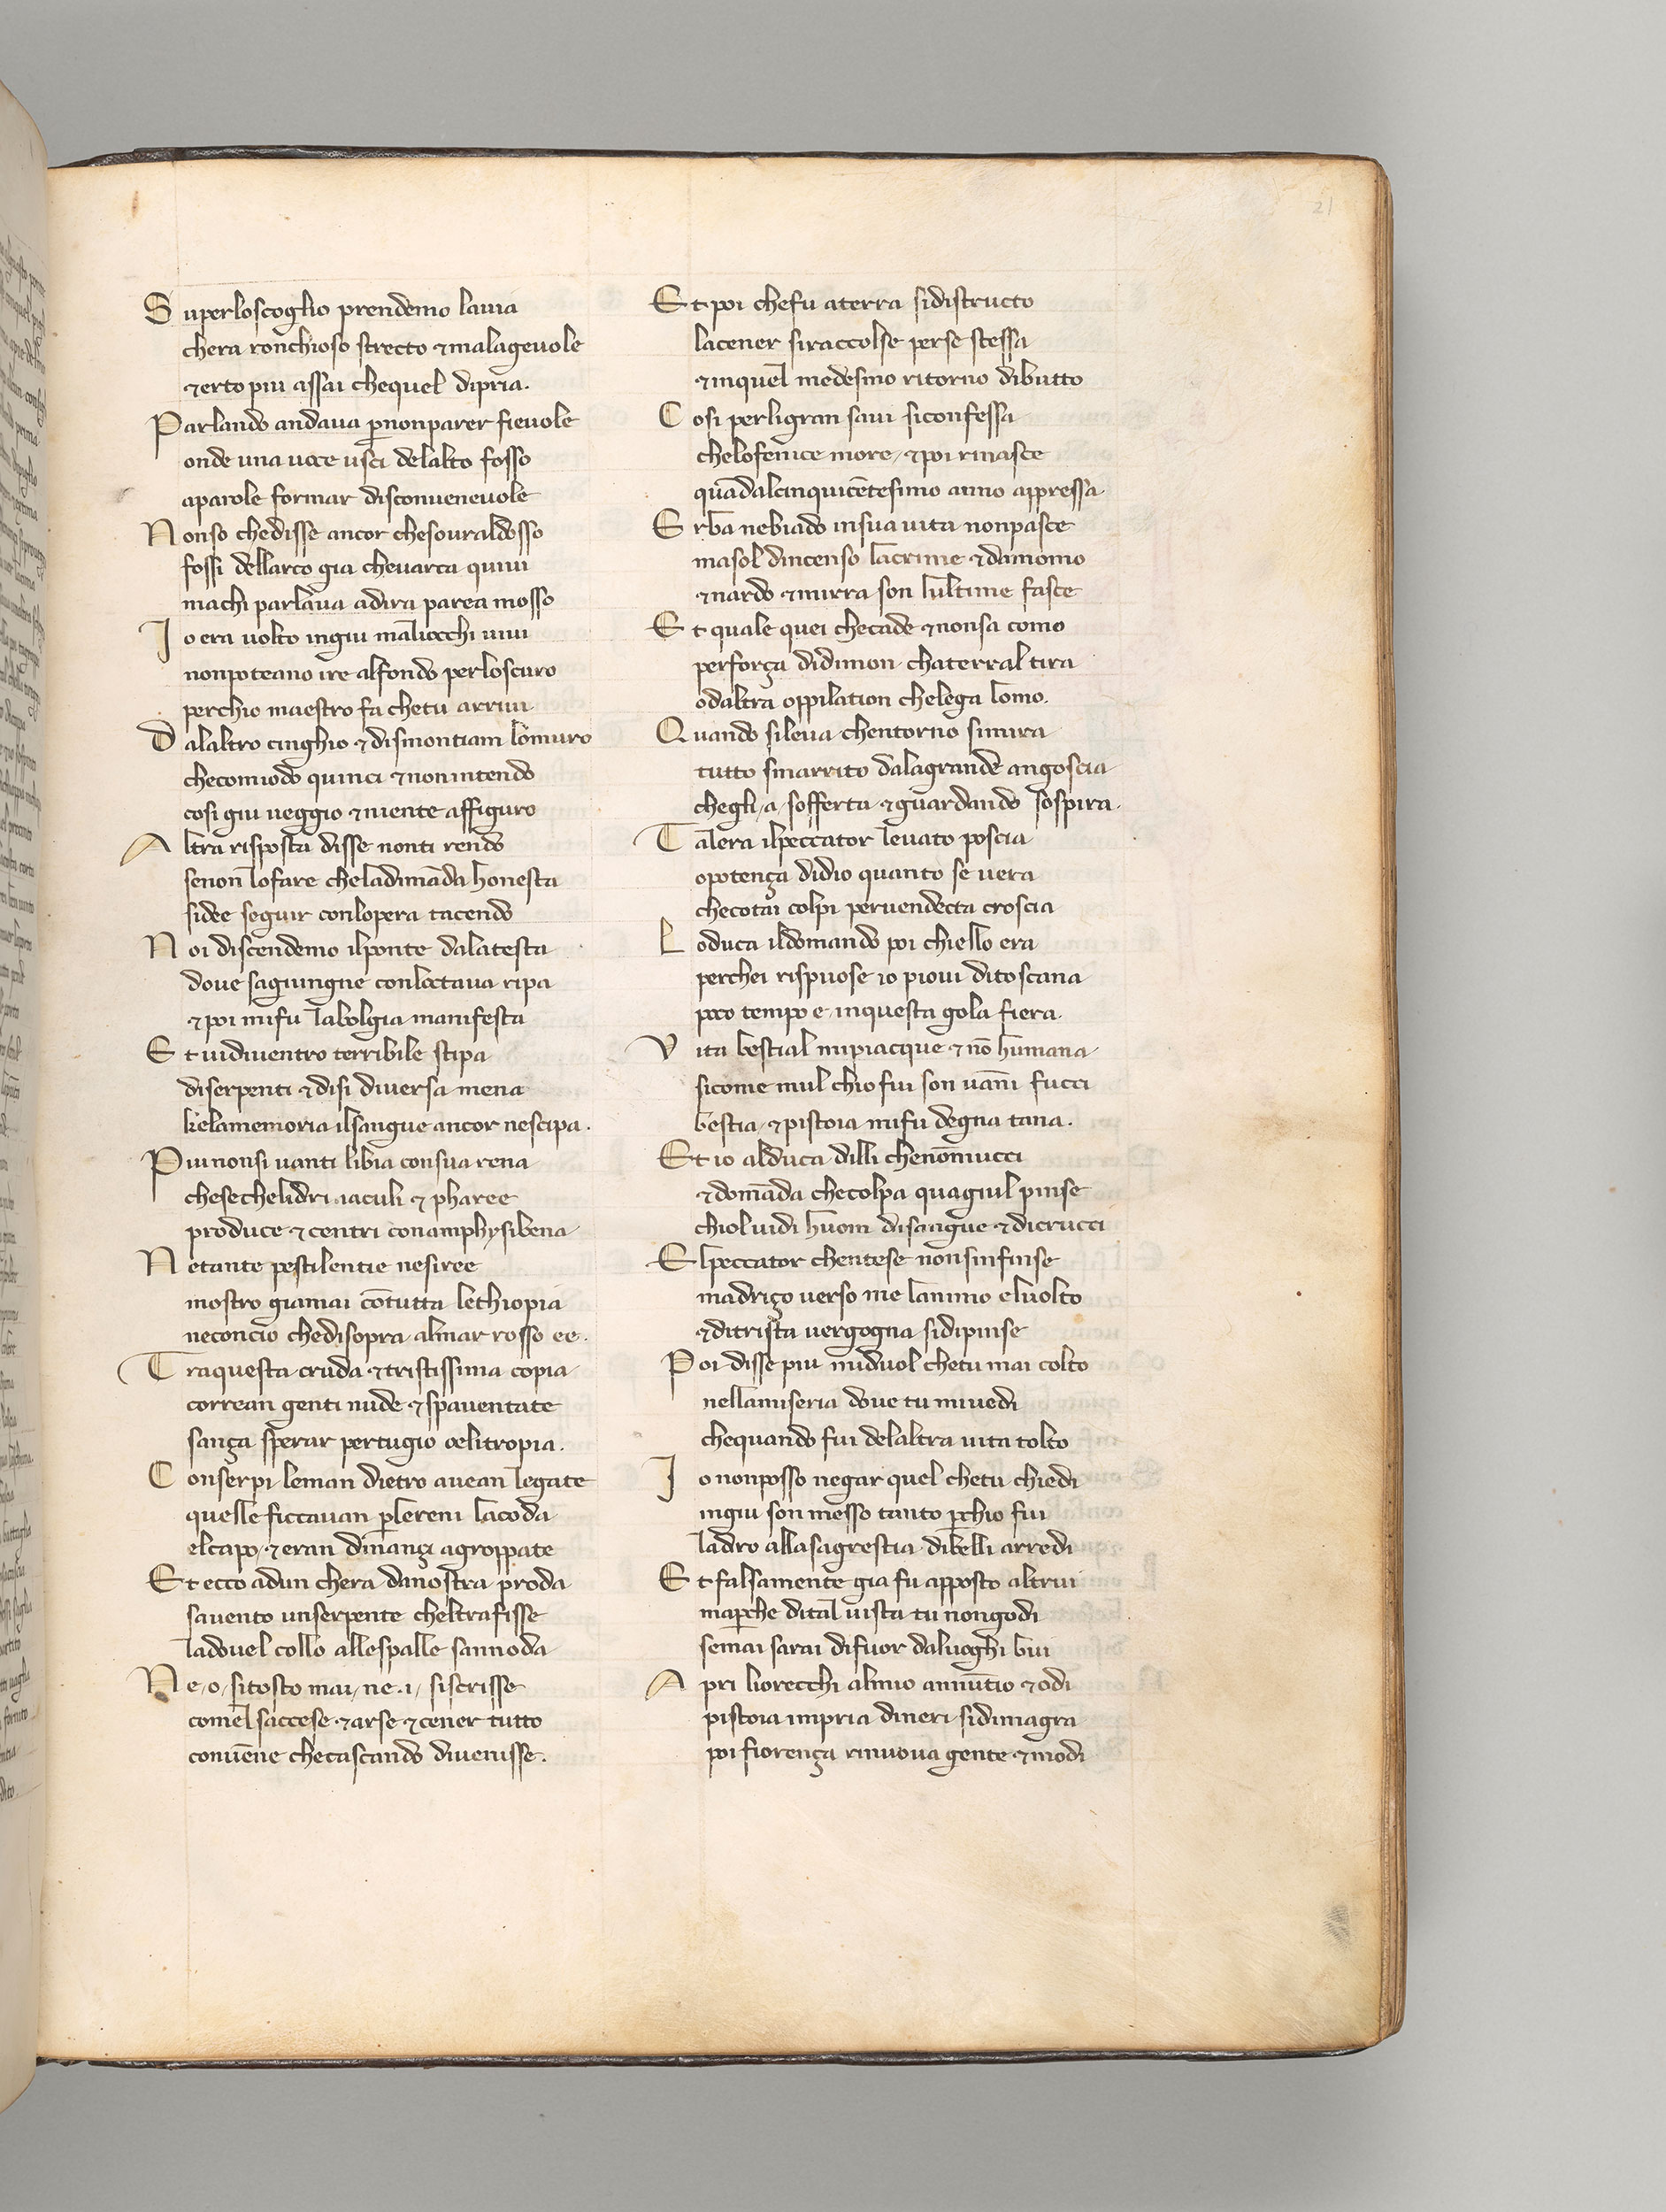 21
Superloscoglio prendemo lauia
chera ronchioso strecto ⁊malageuole
⁊erto piu assai chequel dipria.
Parlando andaua p̲nonparer fieuole
onde una uoce usci delalto fosso
aparole formar disconueneuole
Nonso chedisse ancor chesouraldosso
fossi dellarco gia cheuarca quiui
machi parlaua adira parea mosso
Io era uolto ingiu maliocchi uiui
nonpoteano ire alfondo perloscuro
perchio maestro fa chetu arriui
Dalaltro cinghio ⁊dismontiam lomuro
checomiodo quinci ⁊nonintendo
cosi giu ueggio ⁊niente affiguro
Altra risposta disse nonti rendo
senon lofare cheladimāda honesta
sidee seguir conlopera tacendo
Noi discendemo ilponte dalatesta
doue sagiungne conloctaua ripa
⁊poi mifu labolgia manifesta
Et uidiuentro terribile stipa
diserpenti ⁊disi diuersa mena
kelamemoria ilsangue ancor nescipa.
Piu nonsi uanti libia consua rena
chesechelidri iaculi ⁊ pharee
produce ⁊centri conamphysibena
Netante pestilentie nesiree
mostro giamai cōtutta lethiopia
neconcio chedisopra almar rosso ee.
Traquesta cruda ⁊tristissima copia
correan genti nude ⁊spauentate
sança sperar pertugio oelitropia.
Conserpi leman dietro auean legate
quelle ficcauan p̲lereni lacoda
elcapo, ⁊eran dinançi agroppate
Et ecco adun chera danostra proda
sauento unserpente cheltrafisse
ladouel collo allespalle sannoda
Ne,o, sitosto mai, ne.i, siscrisse
comel saccese ⁊arse ⁊cener tutto
conuēne checascando diuenisse.
Et poi chefu aterra sidistructo
lacener siraccolse perse stessa
⁊inquel medesmo ritorno dibutto
Cosi perligran saui siconfessa
chelofenice more, ⁊poi rinasce
quādalcinquicētesimo anno appressa
Erba nebiado insua uita nonpasce
masol dincenso lacrime ⁊damomo
⁊nardo ⁊mirra son lultime fasce
Et quale quei checade ⁊nonsa como
perforça didimon chaterral tira
odaltra oppilation chelega lomo.
Quando silieua chentorno simira
tutto smarrito dalagrande angoscia
chegli,a,sofferta ⁊guardando sospira.
Talera ilpeccator leuato poscia
opotença didio quanto se uera
checotai colpi peruendecta croscia
Loduca ildomando poi chiello era
perchei rispuose io piouui ditoscana
poco tempo e, inquesta gola fiera.
Vita bestial mipiacque ⁊nō humana
sicome mul chiofui son uāni fucci
bestia, ⁊pistoia mifu degna tana.
Et io alduca dilli chenōmucci
⁊domāda checolpa quagiul pinse
chioluidi huom disangue ⁊dicrucci
Elpeccator chentese nonsinfinse
madriço uerso me lanimo eluolto
⁊ditrista uergogna sidipinse
Poi disse piu miduol chetu mai colto
nellamiseria doue tu miuedi
chequando fui delaltra uita tolto
Io nonposso negar quel chetu chiedi
ingiu son messo tanto p̲chio fui
ladro allasagrestia dibelli arredi
Et falsamente gia fu apposto altrui
map̲che dital uista tu nongodi
semai sarai difuor daluoghi bui
Apri liorecchi almio annūtio ⁊odi
pistoia impria dineri sidimagra
poi fiorença rinuoua gente ⁊modi